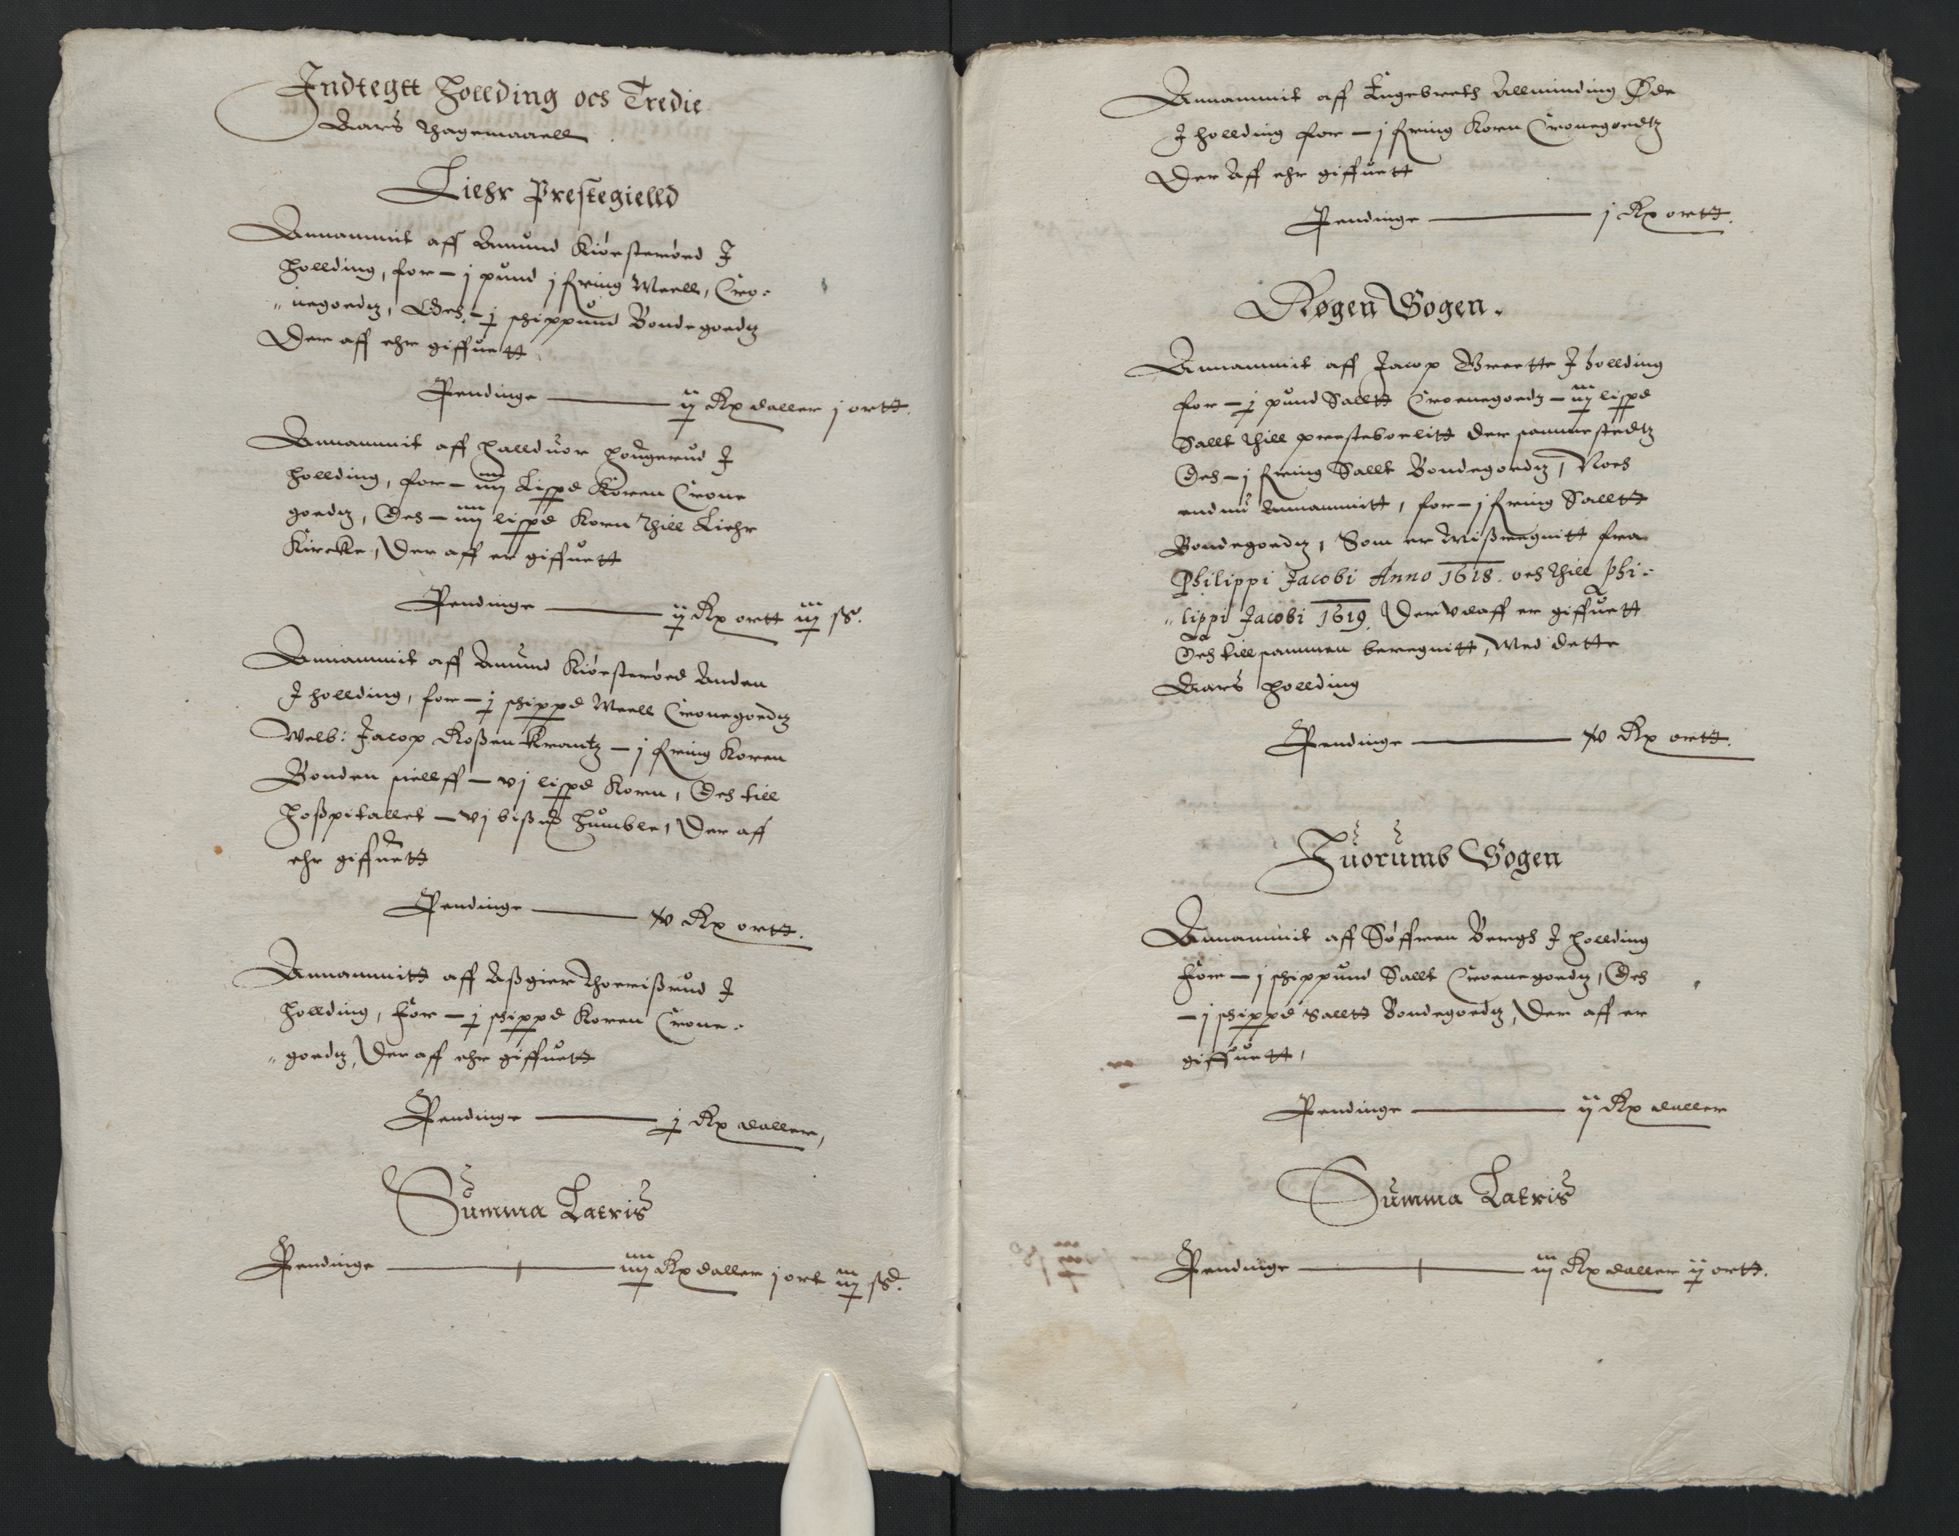 Indtegtt Holldning och Tredie
Aars Thagemaaell
Liehr Prestegielld
Annammit aff Amund Kiøesterøed J
Hollding, for – j pund j fring Meell, Cro-
"negoedtz, Och – j schippund Bondegoedtz
Der aff ehr giffuett
Pendinge — ij Rx daller j ortt.
Annammit aff Halduor Hougerud J
Hollding, for – iiij Lispd Koren Crone
goedtz, Och – iiij lispd Korn Thill Liehr
Kircke, Der aff er giffuett
Pendinge — ij Rx ortt iij ss.
Annammit aff Amund Kiøesterøed Anden
J hollding, for – j schippd Meell Cronegoedtz
Welb: Jacop Roßen Krantz – j fring Koren
Bonden sielff – vj lispd Korn, Och till
Hoßpitallet – vj bißmd Humble, Der aff
ehr giffuett
Pendinge — xv Rx ortt.
Annammitt aff Aßgier Thorrißrud J
Hollding, For – j schippd Koren Crone-
"goedtz, Der aff ehr giffuett
Pendinge — j Rx daller,
Summa Lateris
Pendinge — iiij Rxdaller j ort iij ss.
Annammit aff Engebreth Allminding Øde
J hollding for – j fring Korn Cronegoedtz
Der Aff ehr giffuett
Pendinge — j Rx ortt.
Røgen Sogen.
Annammit aff Jacop Breette J Hollding
for – j pund Salltt Cronegoedtz – iij lispd
Sallt Thill presteboelitt der sammestedtz
Och – j fring Sallt Bondegoedtz, Noch
endnu Annammitt, for – j fring Salltt
Bondegoedtz, Som er Mißregnitt fra
Philippi Jacobi Anno 1618. och Thill Phi-
"lippi Jacobi 1619, Der vdaff er giffuett
Och till sammen beregnitt, Med dette
Aars Hollding
Pendinge — xv Rx ortt.
Huorumb Sogen
Annammit aff Søffren Bergh J Hollding
For – j schippund Sallt Croenegoedtz, Och
– j schippd Salltt Bondegoedtz, Der aff er
giffuett,
Pendinge — ij Rx daller
Summa Lateris
Pendinge — iij Rxdaller ij ortt.